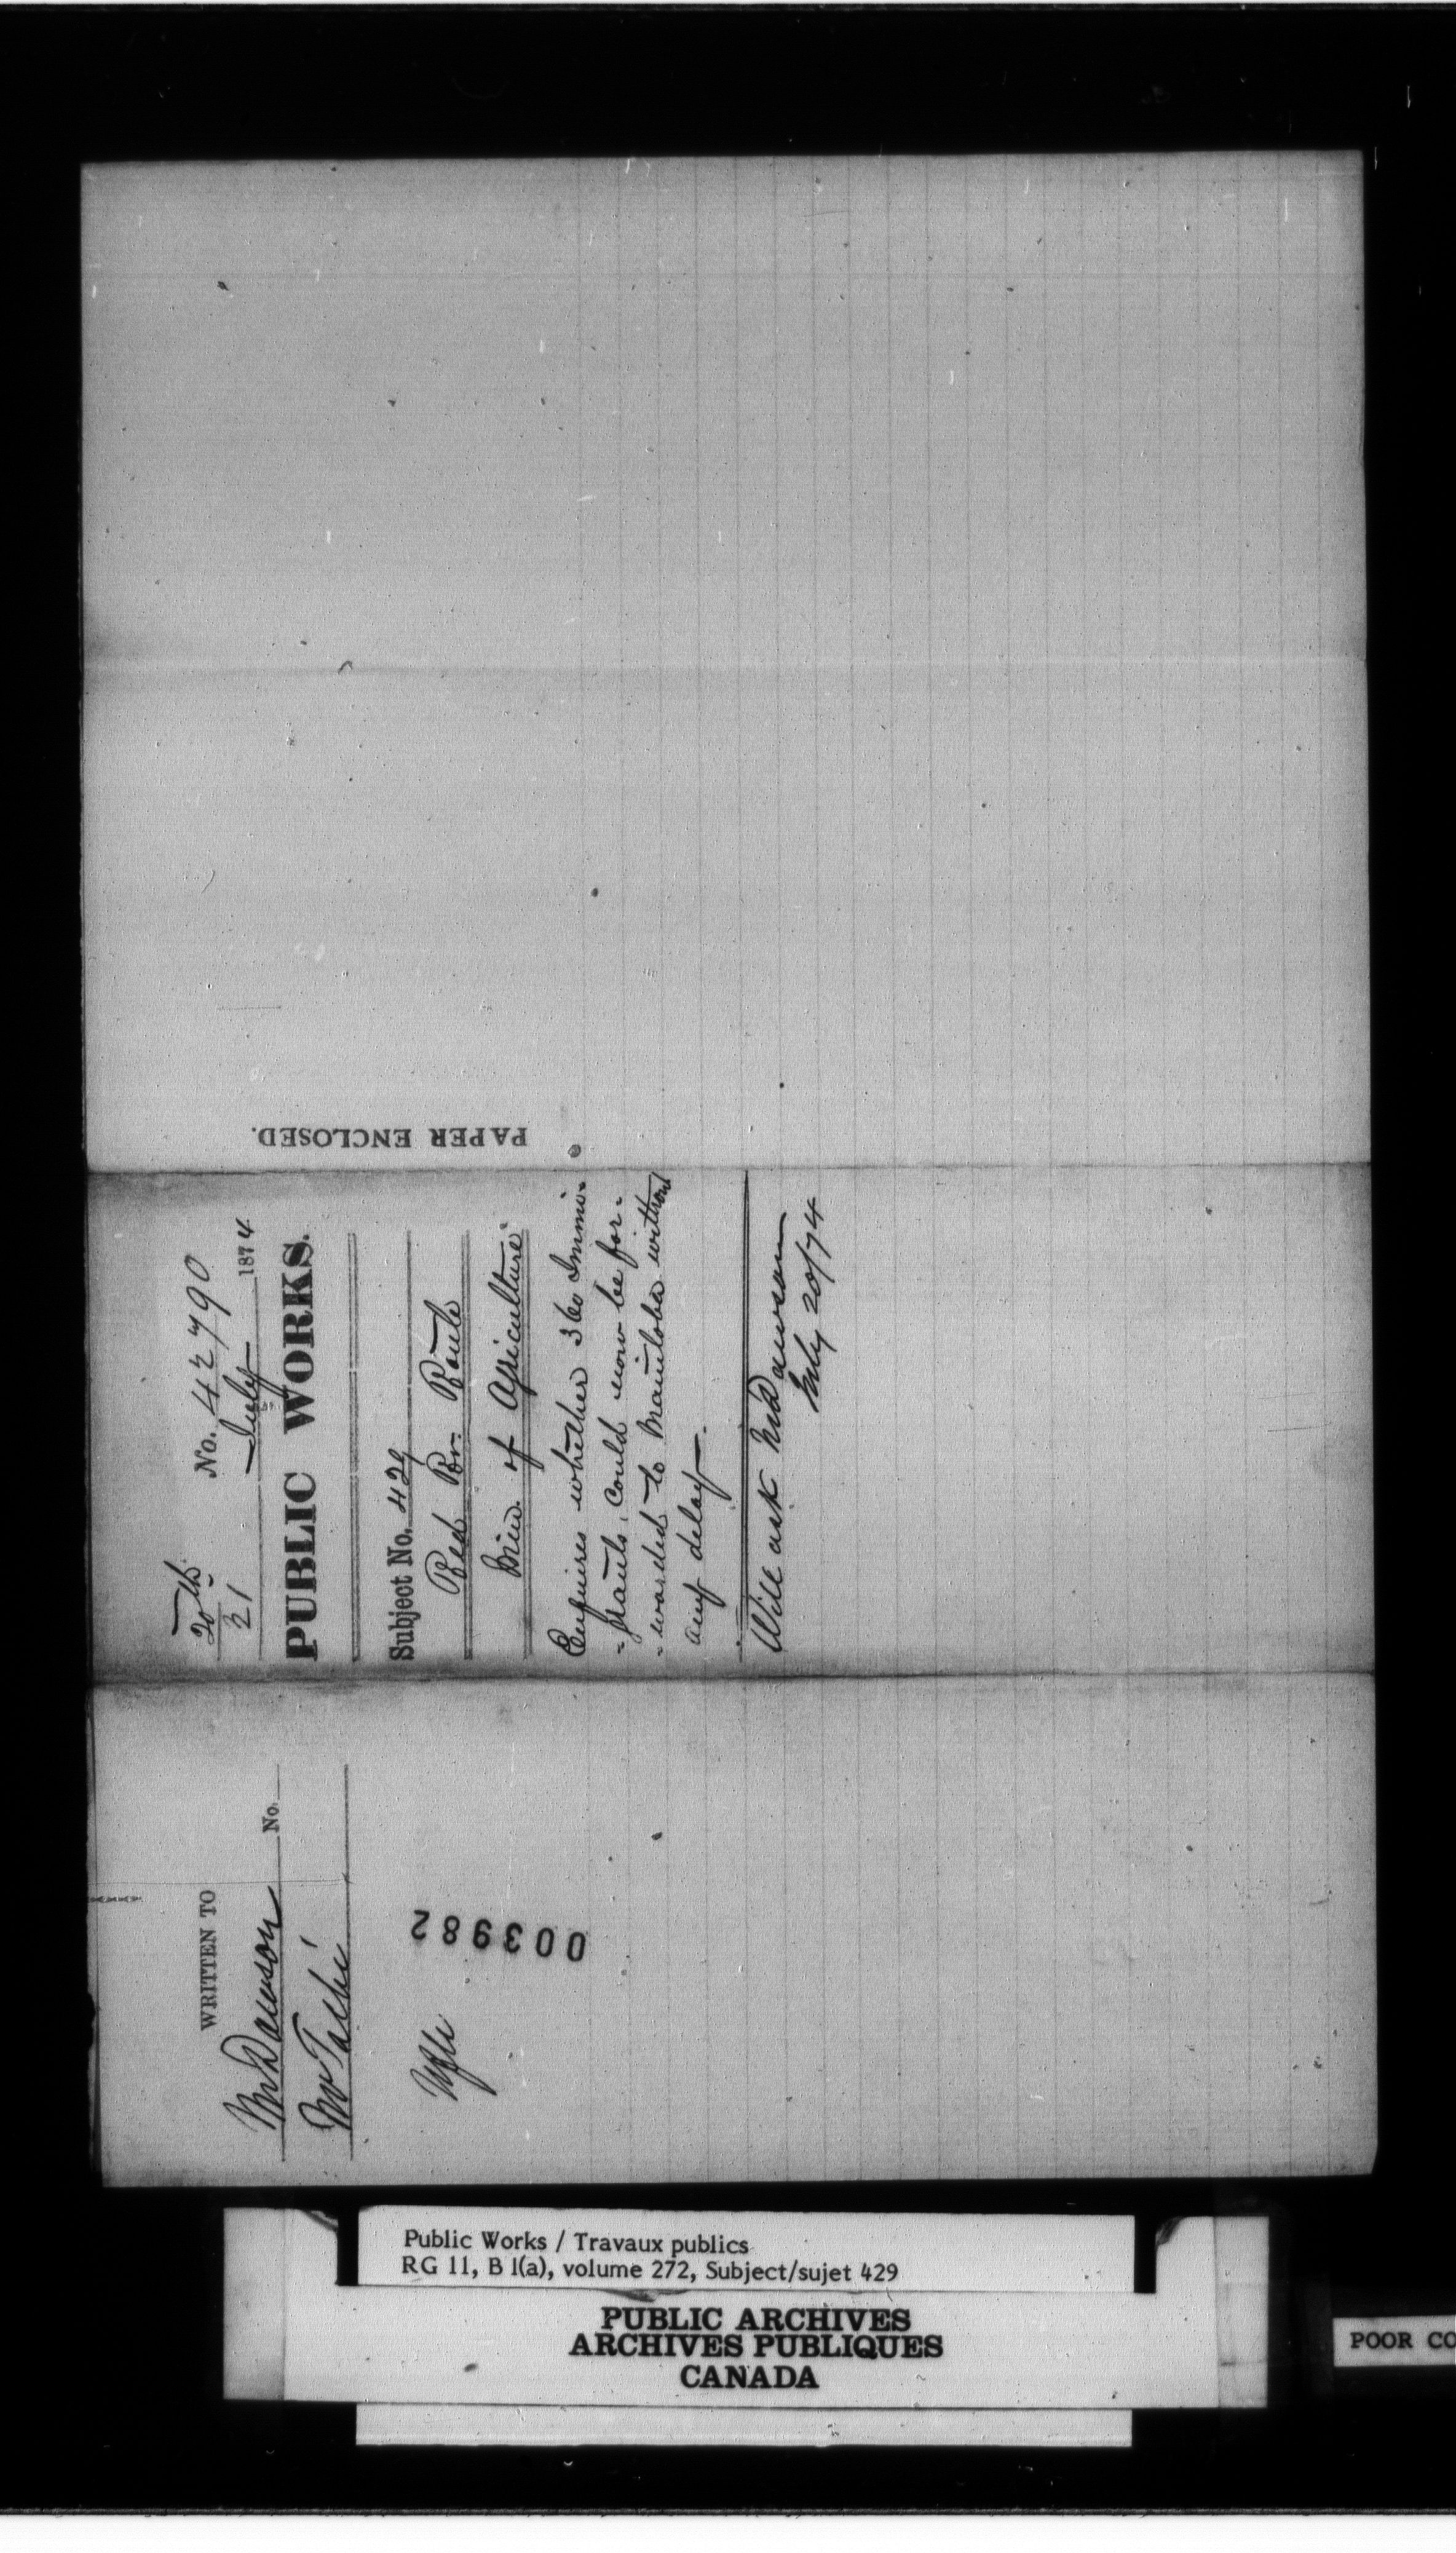 PAPER ENCLOSED.
20th
21
No. 42790
July 1874
PUBLIC WORKS.
Subject No. 429
Red Rr. Route
Min. of Agriculture
Enquires whether 360 Immi-
-grants, could now be for-
-warded to Manitoba without
any delay.
Will ask Mr Dawson
July 20/74
WRITTEN TO
No.
Mr Dawson
Mr Taché
003982
Public Works / Travaux publics
RG 11, B 1(a), volume 272, Subject/sujet 429
PUBLIC ARCHIVES
ARCHIVES PUBLIQUES
CANADA
POOR CO